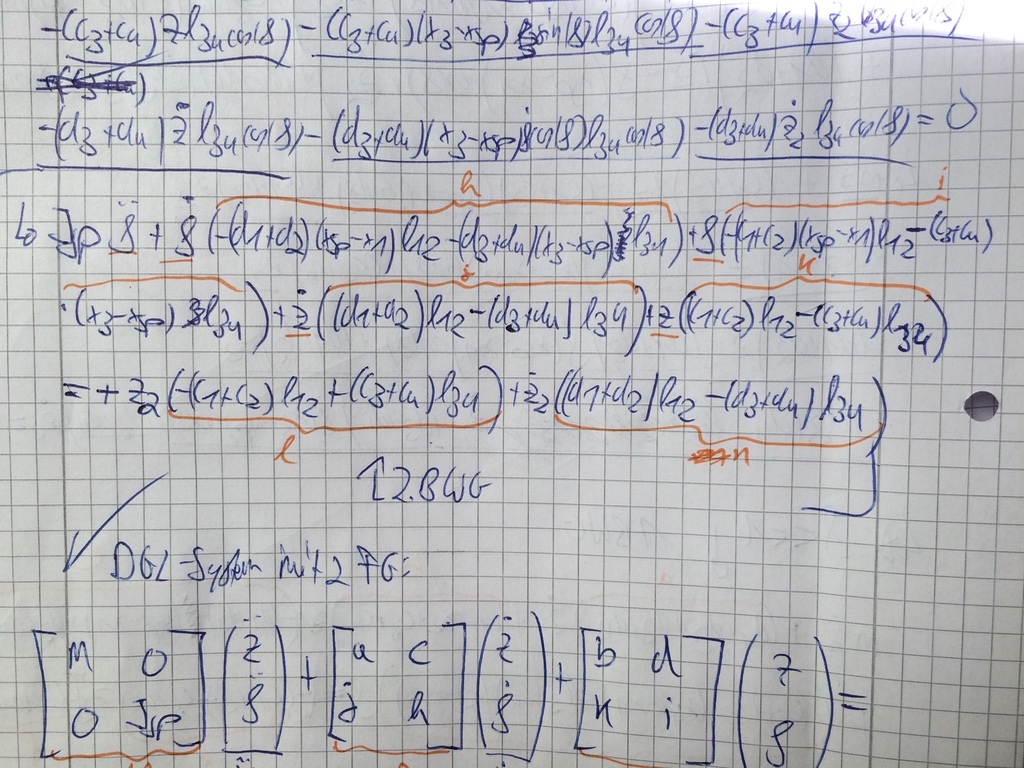 -(c3+c4) z l34 cos(ϑ) - (c3+c4)(x3-xsp) sin(ϑ) l34 cos(ϑ) - (c3+c4) z2 l34 cos(ϑ)
-(d3+d4) ż l34 cos(ϑ) - (d3+d4)(x3-xsp) cos(ϑ) l34 cos(ϑ) - (d3+d4) ż2 l34 cos(ϑ) = 0
h i
↳ Jsp ϑ̈ + ϑ̇ (-(d1+d2)(xsp-x1) l12 - (d3+d4)(x3-xsp) l34) + ϑ (-(c1+c2)(xsp-x1) l12 - (c3+c4)
j k
·(x3-xsp) l34) + ż ((d1+d2) l12 - (d3+d4) l34) + z ((c1+c2) l12 - (c3+c4) l34)
= + z2 (-(c1+c2) l12 + (c3+c4) l34) + ż2 ((d1+d2) l12 - (d3+d4) l34)
l n
↑ 2. BWG
DGL-System mit 2 FG:
[M 0] (z̈) + [a c] (ż) + [b d] (z) =
[0 Jsp] (ϑ̈) [j h] (ϑ̇) [k i] (ϑ)